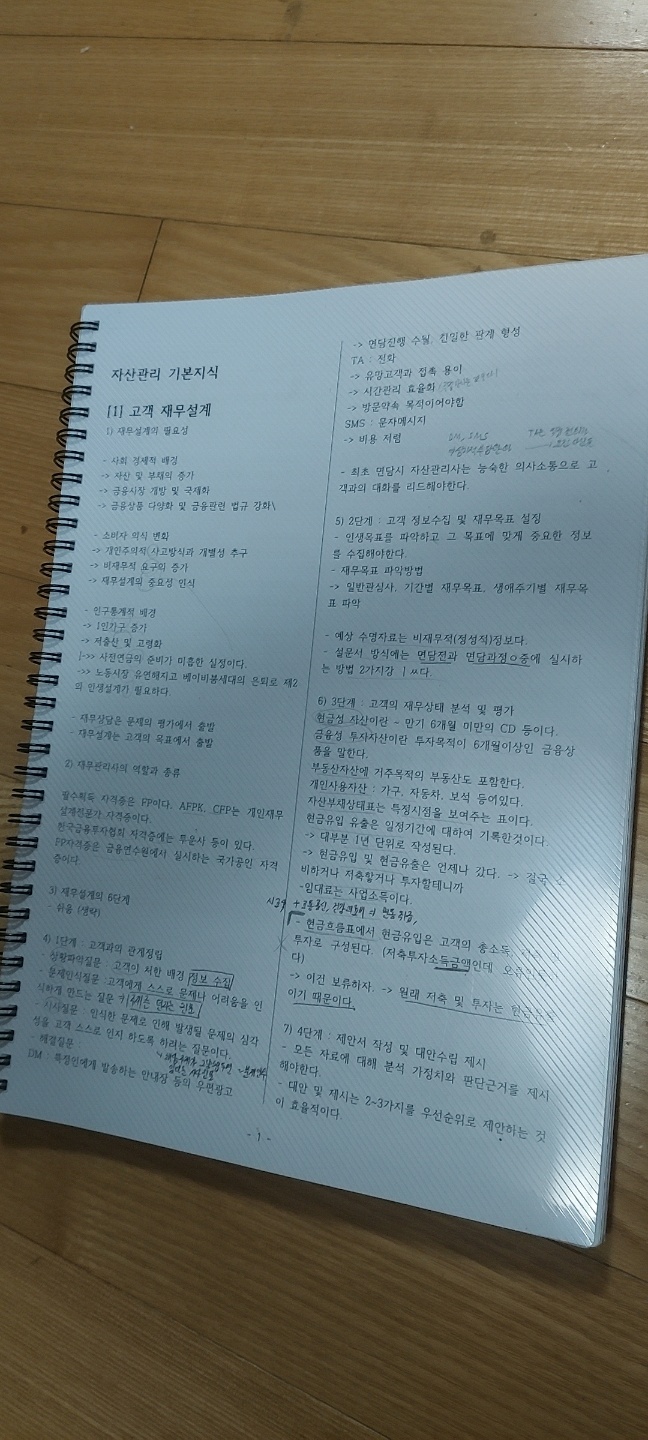 자산관리 기본지식
[1] 고객 재무설계
1) 재무설계의 필요성
- 사회 경제적 배경
-> 자산 및 부채의 증가
-> 금융시장 개방 및 국제화
-> 금융상품 다양화 및 금융관련 법규 강화\
- 소비자 의식 변화
-> 개인주의적 사고방식과 개별성 추구
-> 비재무적 요구의 증가
-> 재무설계의 중요성 인식
- 인구통계적 배경
-> 1인가구 증가
-> 저출산 및 고령화
->> 사전연금의 준비가 미흡한 실정이다.
->> 노동시장 유연해지고 베이비붐세대의 은퇴로 제2
의 인생설계가 필요하다.
- 재무상담은 문제의 평가에서 출발
- 재무설계는 고객의 목표에서 출발
2) 재무관리사의 역할과 종류
필수취득 자격증은 FP이다. AFPK, CFP는 개인재무
설계전문가 자격증이다.
한국금융투자협회 자격증에는 투운사 등이 있다.
FP자격증은 금융연수원에서 실시하는 국가공인 자격
증이다.
3) 재무설계의 6단계
- 쉬움 (생략)
4) 1단계 : 고객과의 관계정립
- 상황파악질문 : 고객이 처한 배경 정보 수집
- 문제인식질문 : 고객에게 스스로 문제나 어려움을 인
식하게 만드는 질문
- 시사질문 : 인식한 문제로 인해 발생될 문제의 심각
성을 고객 스스로 인지 하도록 하려는 질문이다.
- 해결질문 :
DM : 특정인에게 발송하는 안내장 등의 우편광고
-> 면담진행 수월, 친밀한 관계 형성
TA : 전화
-> 유망고객과 접촉 용이
-> 시간관리 효율화
-> 방문약속 목적이어야함
SMS : 문자메시지
-> 비용 저렴
DM, SMS
- 최초 면담시 자산관리사는 능숙한 의사소통으로 고
객과의 대화를 리드해야한다.
5) 2단계 : 고객 정보수집 및 재무목표 설정
- 인생목표를 파악하고 그 목표에 맞게 중요한 정보
를 수집해야한다.
- 재무목표 파악방법
-> 일반관심사, 기간별 재무목표, 생애주기별 재무목
표 파악
- 예상 수명자료는 비재무적(정성적)정보다.
- 설문서 방식에는 면담전과 면담과정ㅇ중에 실시하
는 방법 2가지강 ㅣㅆ다.
6) 3단계 : 고객의 재무상태 분석 및 평가
현금성 자산이란 ~ 만기 6개월 미만의 CD 등이다.
금융성 투자자산이란 투자목적이 6개월이상인 금융상
품을 말한다.
부동산자산에 거주목적의 부동산도 포함한다.
개인사용자산 : 가구, 자동차, 보석 등여있다.
자산부채상태표는 특정시점을 보여주는 표이다.
현금유입 유출은 일정기간에 대하여 기록한것이다.
-> 대부분 1년 단위로 작성된다.
-> 현금유입 및 현금유출은 언제나 같다. -> 결국
비하거나 저축핳거나 투자할테니까
-임대료는 사업소득이다.
- 현금흐름표에서 현금유입은 고객의 총소득,
투자로 구성된다. (저축투자소득금액인데
다)
-> 이건 보류하자. -> 원래 저축 및 투자는 현금유출
이기 때문이다.
7) 4단계 : 제안서 작성 및 대안수립 제시
- 모든 자료에 대해 분석 가정치와 판단근거를 제시
해야한다.
- 대안 및 제시는 2~3가지를 우선순위로 제안하는 것
이 효율적이다.
- 1 -